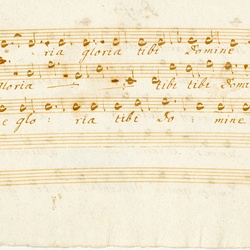 ria gloria tibi Domine
Gloria tibi tibi Domi
e glo: ria tibi Do mine